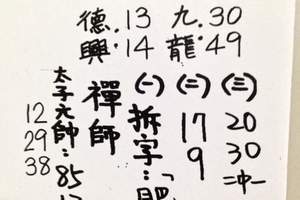 德.13 九.30
興.14 龍.49
太子元帥:85
12
29
38
禪師
(一)
拆字:「肥
(二)
17
9
(三)
20
30
二中一